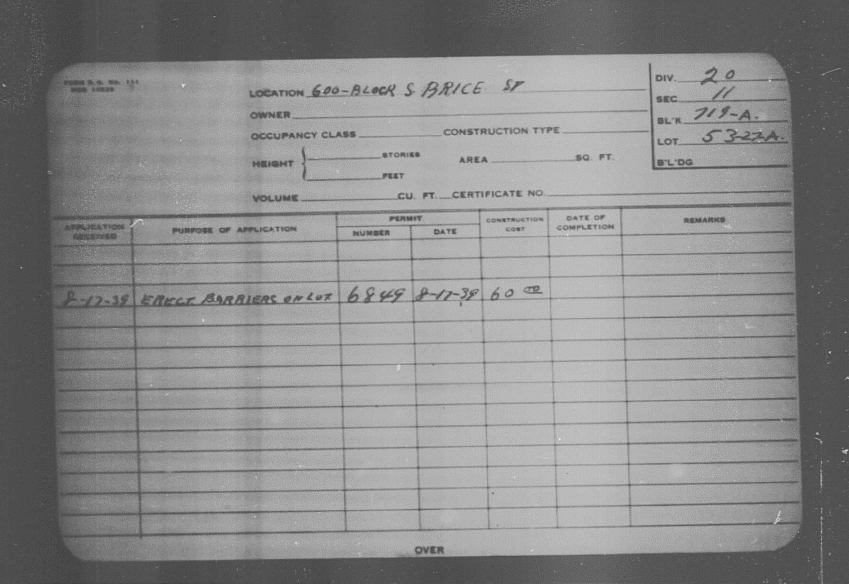 FORM B.G. No. 111
LOCATION 600-BLOCK S BRICE ST
OWNER
OCCUPANCY CLASS CONSTRUCTION TYPE
HEIGHT STORIES AREA SQ. FT.
FEET
VOLUME CU. FT. CERTIFICATE NO.
DIV. 20
SEC 11
BL'K 719-A.
LOT 53-27A.
B'L'DG
APPLICATION RECEIVED PURPOSE OF APPLICATION PERMIT NUMBER DATE CONSTRUCTION COST DATE OF COMPLETION REMARKS
8-17-39 ERECT BARRIERS ON LOT 6849 8-17-39 60 00
OVER